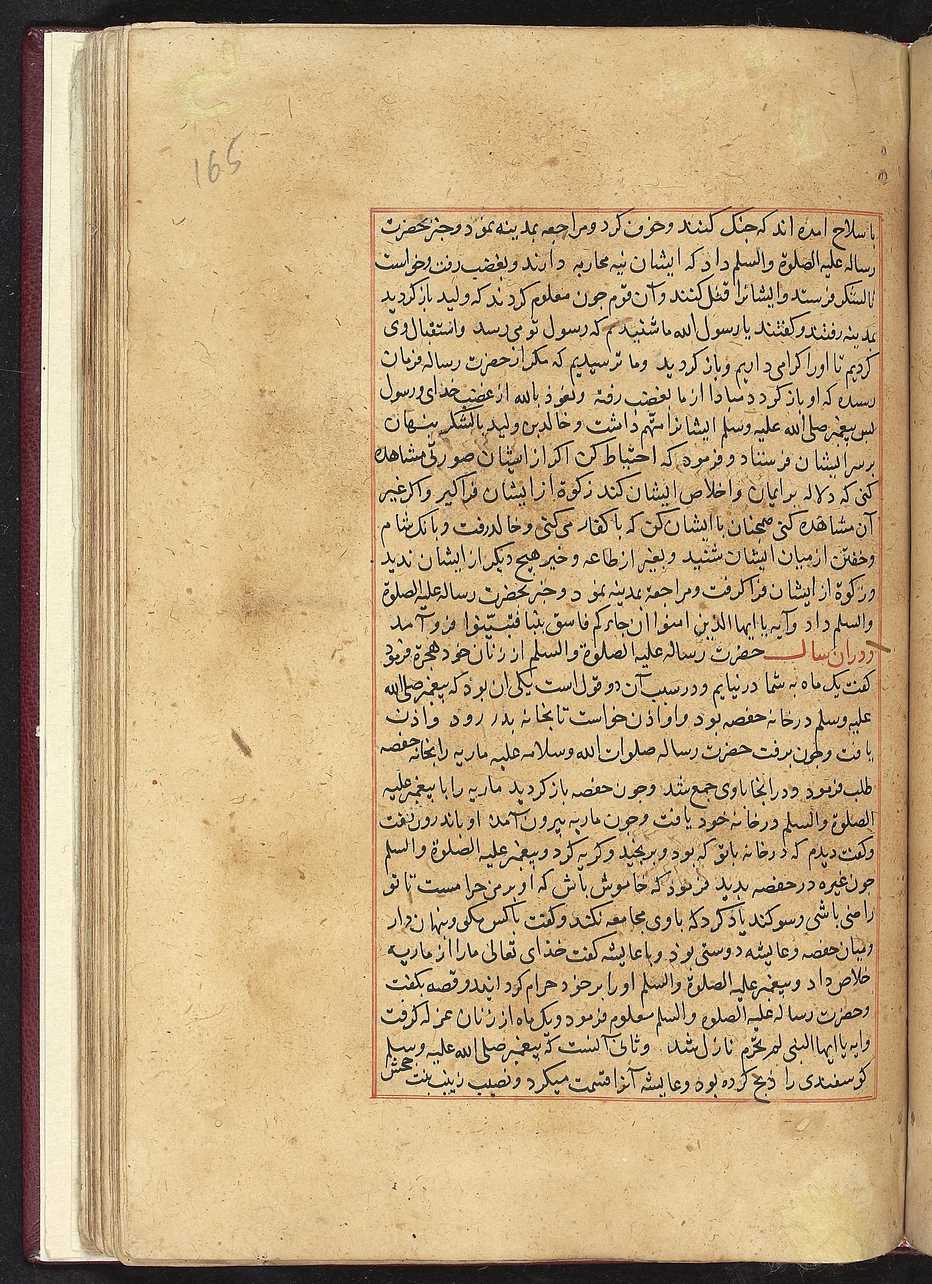 165
با سلاح امده اند که جنک کنند و خوف کرد و مراجعه بمدینه نمود و خبر بحضرت
رساله علیه الصلوة والسلم داد که ایشان نیه محاربه دارند و بغضب رفت و خواست
تا لشکر فرستد و ایشانرا قتل کنند و آن قوم جون معلوم کردند که ولید باز کردید
بمدینه رفتند و کفتند یا رسول الله ما شنیدیم که رسول تو می رسد و استقبال وی
کردیم تا او را کرامی داریم و باز کردید و ما ترسیدیم که مکر از حضرت رساله فرمان
رسیده که او باز کردد مبادا از ما بغضب رفته و نعوذ بالله از غضب خدای و رسول
بس بیغمبر صلی الله علیه وسلم ایشانرا متهم داشت و خالد بن ولید با لشکر بنهان
بر سر ایشان فرستاد و فرمود که احتیاط کن اکر از ایشان صورتی مشاهده
کنی که دلاله بر ایمان و اخلاص ایشان کند زکوة از ایشان فراکیر و اکر غیر
آن مشاهده کنی همجنان با ایشان کن که با کفار می کنی و خالد رفت و بانک شام
و خفتن از میان ایشان شنید و بغیر از طاعه و خیر هیج دیکر از ایشان ندید
و زکوة از ایشان فرا کرفت و مراجعه بمدینه نمود و خبر بحضرت رساله علیه الصلوة
والسلم داد و آیه یا ایها الذین امنوا ان جاءکم فاسق بنبا فتبینوا فرو آمد
و در ان سال حضرت رساله علیه الصلوة والسلم از زنان خود هجرة فرمود
کفت یک ماه به شما در نیایم و در سبب آن دو قول است یکی ان بود که بیغمبر صلی الله
علیه وسلم در خانه حفصه بود و او اذن خواست تا بخانه بدر رود و اذن
یافت و جون برفت حضرت رساله صلوات الله وسلامه علیه ماریه را بخانه حفصه
طلب فرمود و در انجا با وی جمع شد و جون حفصه باز کردید ماریه را با بیغمبر علیه
الصلوة والسلم در خانه خود یافت و جون ماریه بیرون آمد او باندرون رفت
و کفت دیدم که در خانه با تو که بود و برنجید و کریه کرد و بیغمبر علیه الصلوة والسلم
جون غیره در حفصه بدید فرمود که خاموش باش که او بر من حرامست تا تو
راضی باشی و سوکند یاد کرد که با وی مجامعه نکند و کفت با کس مکوی و بنهان دار
و میان حفصه و عایشه دوستی بود و با عایشه کفت خدای تعالی ما را از ماریه
خلاص داد و بیغمبر علیه الصلوة والسلم او را بر خود حرام کردانید و قصه بکفت
و حضرت رساله علیه الصلوه والسلم معلوم فرمود و یک ماه از زنان عزله کرفت
و ایه یا ایها النبی لم تحرم نازل شد و ثانی آنست که بیغمبر صلی الله علیه وسلم
کوسفندی را ذبح کرده بود و عایشه آنرا قسمت میکرد و نصیب زینب بنت جحش